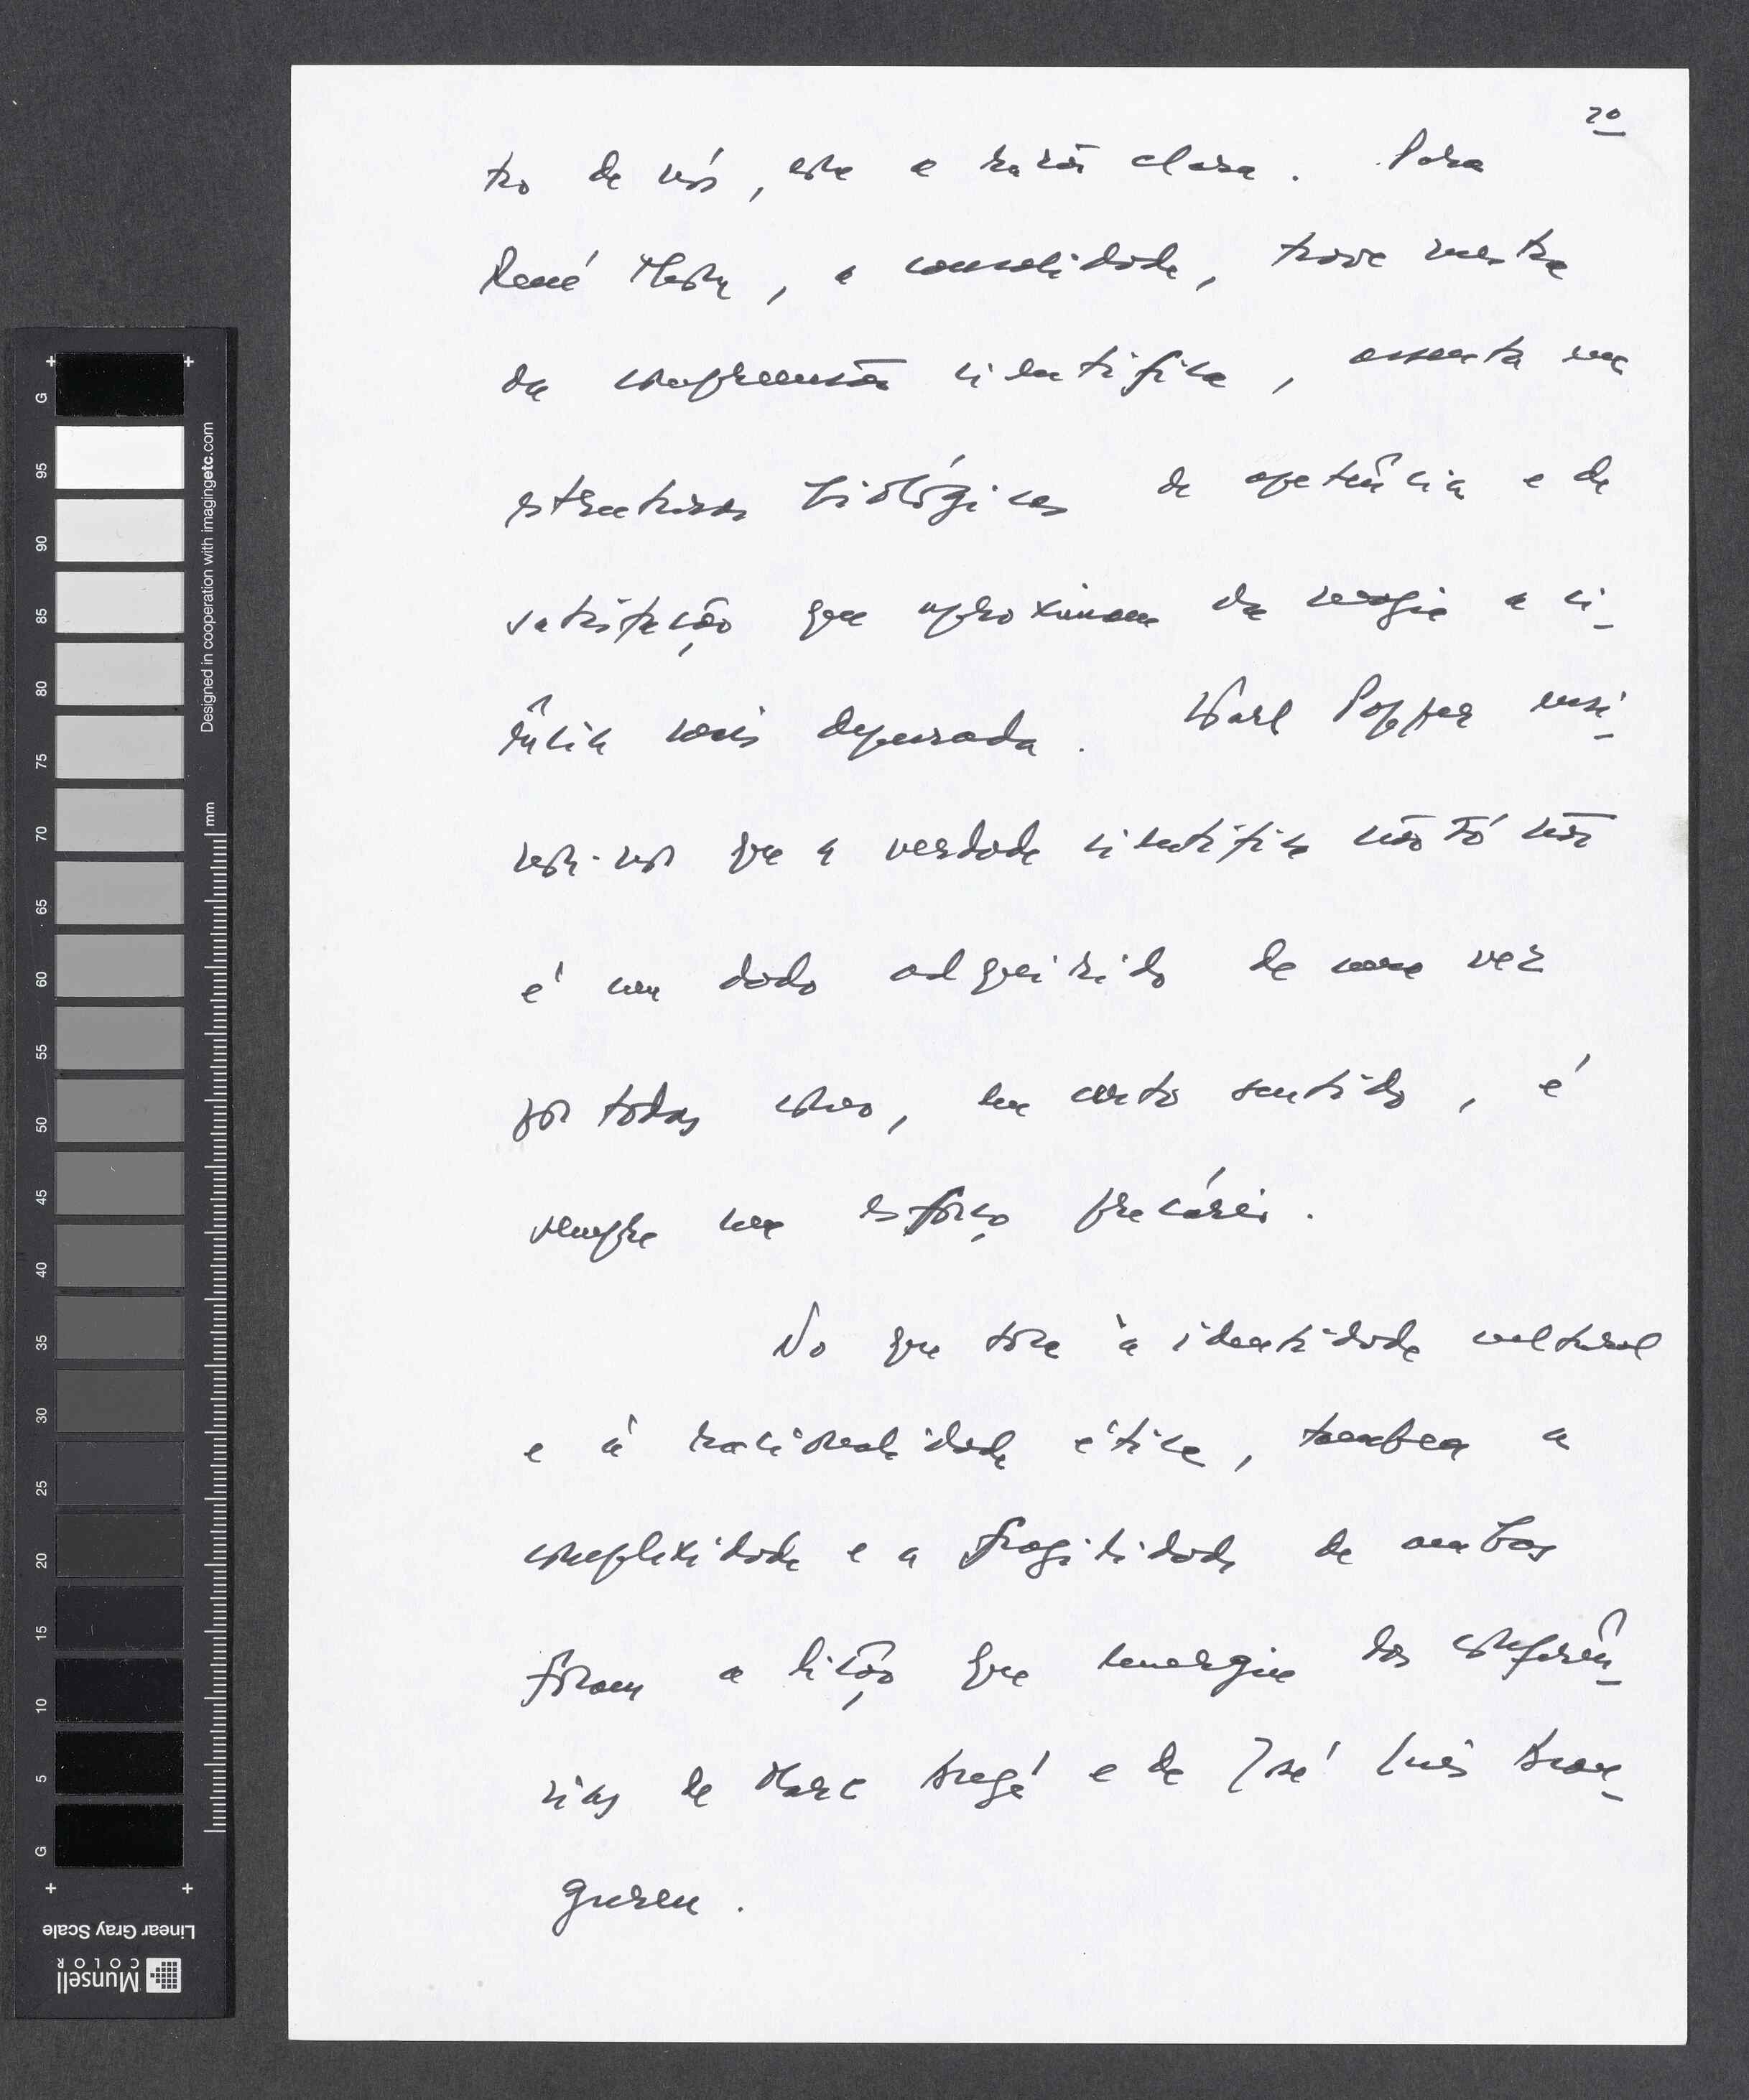 20
tro de nós, está a razão clara. Para
René Thom, a causalidade, trave mestra
da compreensão científica, assenta em
estruturas biológicas de apetência e de
satisfação que aproximam da magia a ci-
ência mais depurada. Karl Popper ensi-
nou-nos que a verdade científica não só não
é um dado adquirido de uma vez
por todas como, em certo sentido, é
sempre um esforço precário.
No que toca à identidade cultural
e à racionalidade ética, também a
complexidade e a fragilidade de ambas
foram a lição que emergiu das conferên-
cias de Marc Augé e de José Luis Aran-
guren.
G
95
90
85
80
75
70
65
60
55
50
45
40
35
30
25
20
15
10
5
G
Designed in cooperation with imagingetc.com
mm
Linear Gray Scale
Munsell
COLOR